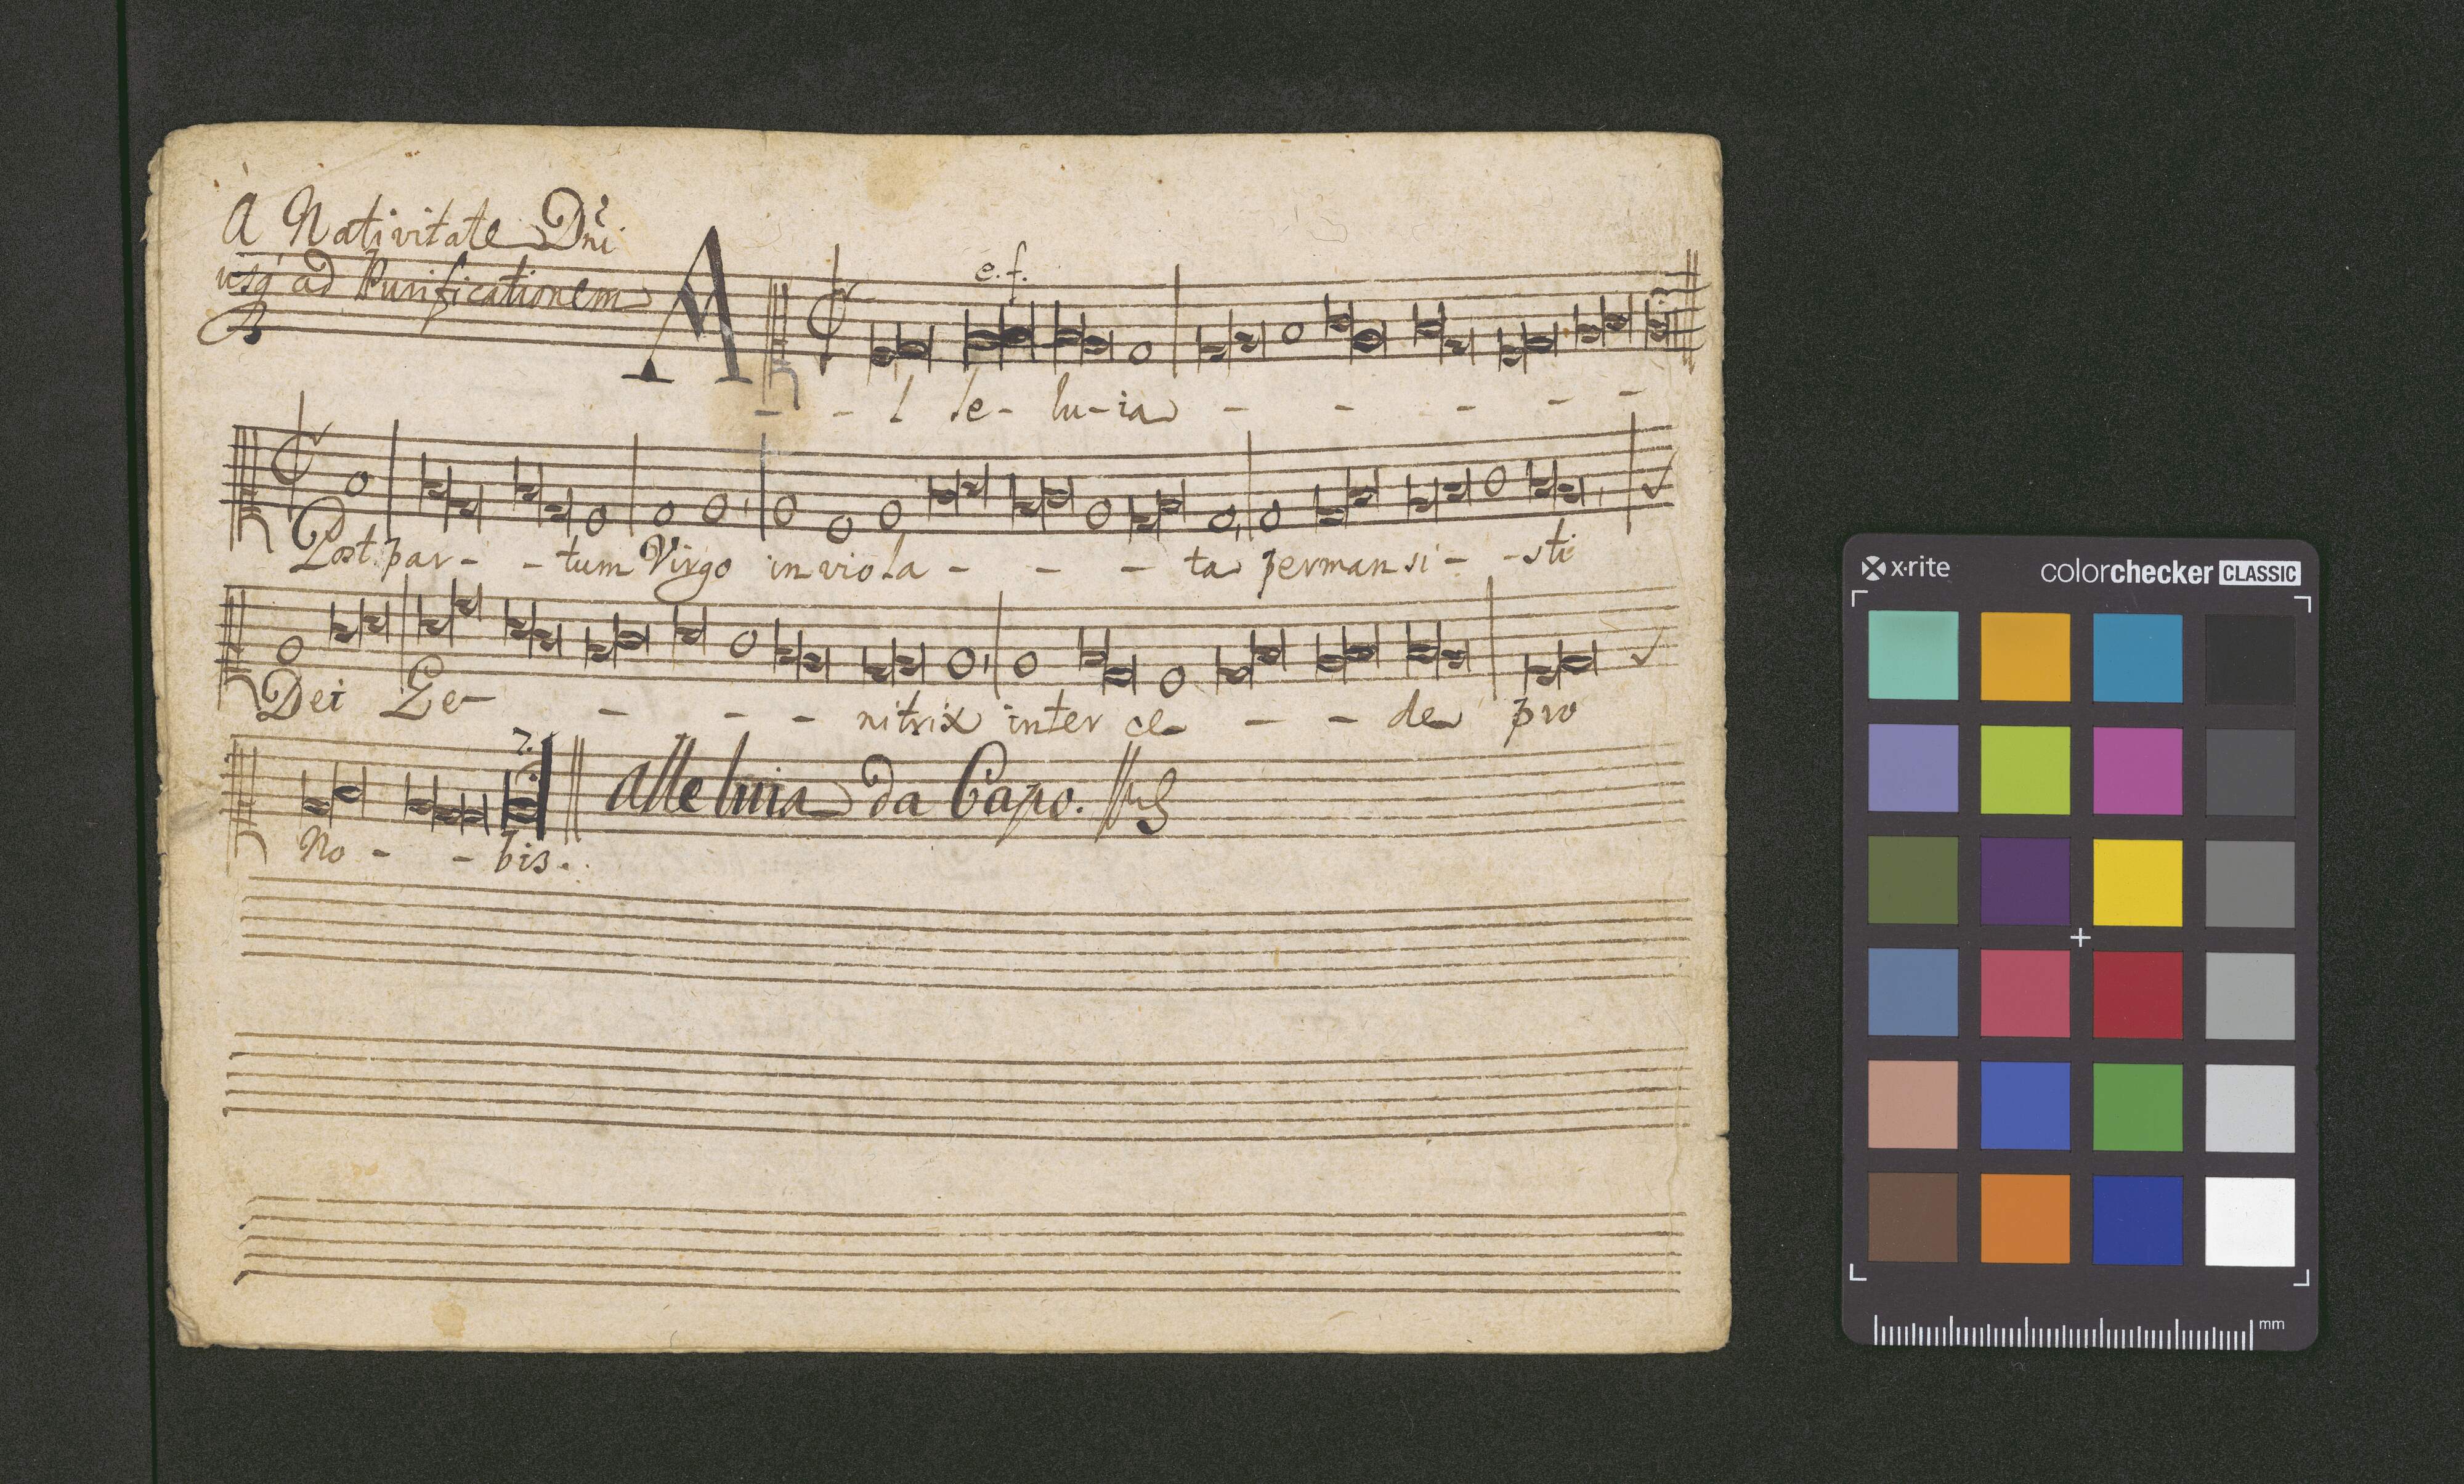 A Nativitate Dñi
usq̃ ad Purificationem
e.f.
A - - l le - lu - ia - - - - -
Post par - - tum Virgo inviola - - - ta permansi - - sti
Dei Ge - - - - nitrix interce - - de pro
No - - bis.
Alleluia da Capo.
x·rite colorchecker CLASSIC
mm